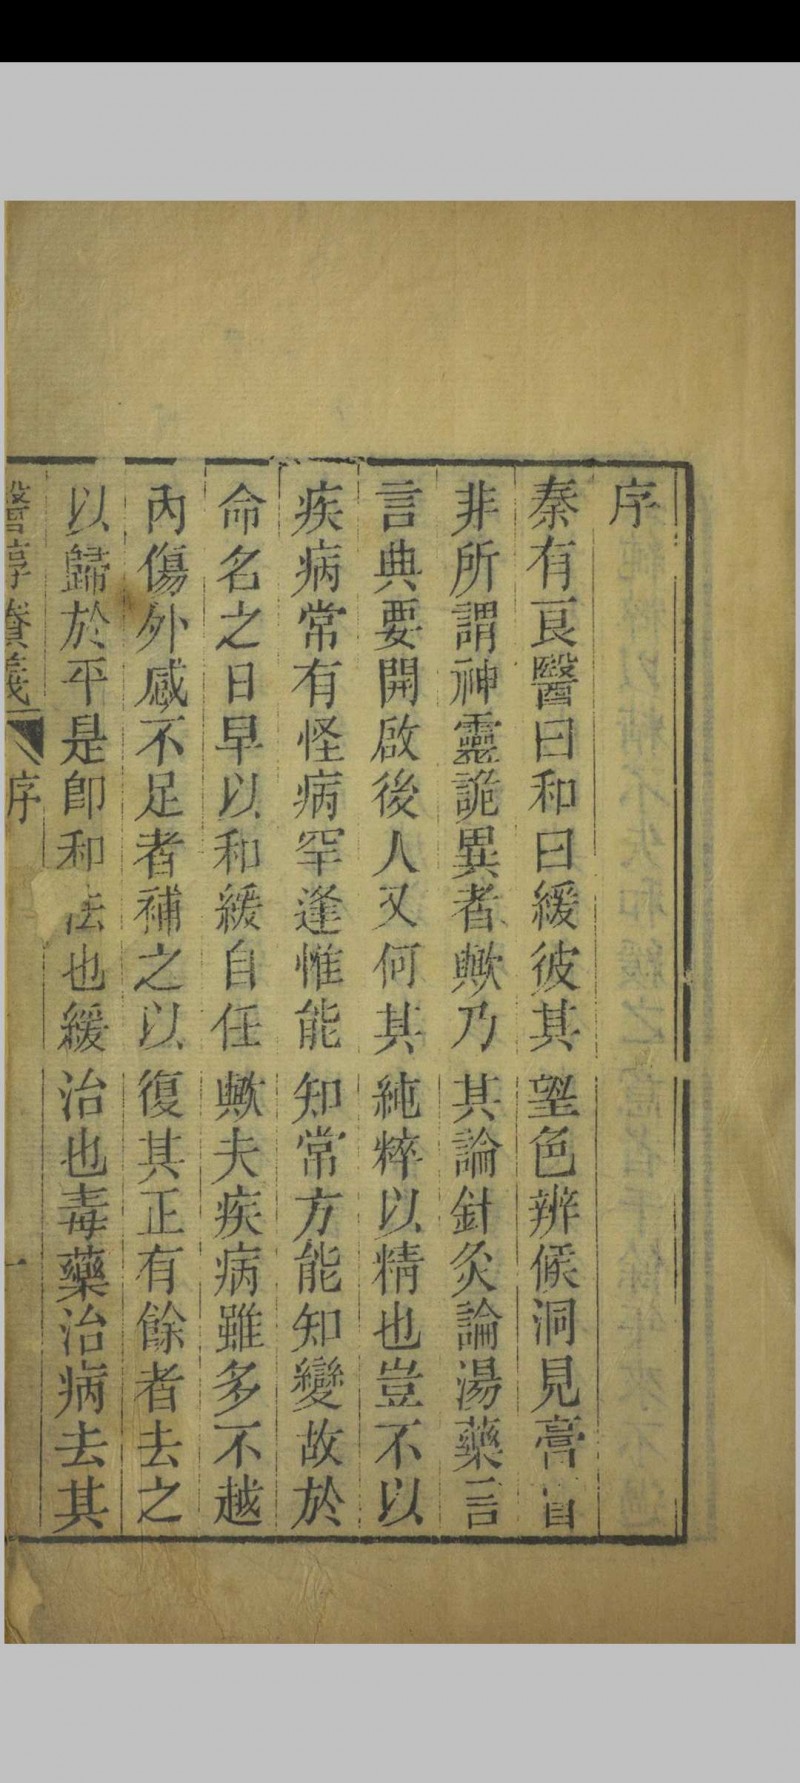 序
秦有良醫曰和曰緩彼其望色辨候洞見膏肓
非所謂神靈詭異者歟乃其論針灸論湯藥言
言典要開啟後人又何其純粹以精也豈不以
疾病常有怪病罕逢惟能知常方能知變故於
命名之日早以和緩自任歟夫疾病雖多不越
內傷外感不足者補之以復其正有餘者去之
以歸於平是卽和法也緩治也毒藥治病去其
醫醇賸義
序
一